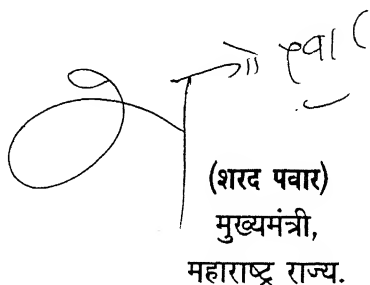 (शरद पवार)
मुख्यमंत्री,
महाराष्ट्र राज्य.